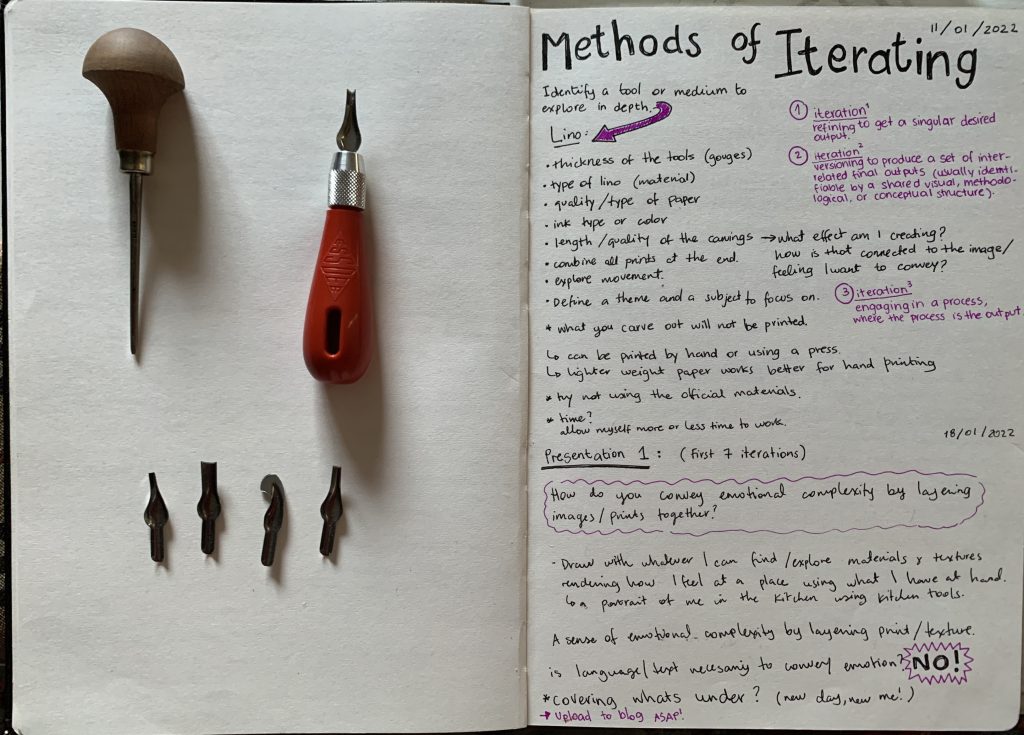 11/01/2022
Methods of Iterating
Identify a tool or medium to
explore in depth.
Lino:
• thickness of the tools (gouges)
• type of lino (material)
• quality/type of paper
• ink type or color
• length/quality of the carvings → what effect am I creating?
how is that connected to the image/
feeling I want to convey?
• combine all prints at the end.
• explore movement.
• Define a theme and a subject to focus on.
* what you carve out will not be printed.
↳ can be printed by hand or using a press.
↳ lighter weight paper works better for hand printing
* try not using the official materials.
* time?
allow myself more or less time to work.
① iteration¹
refining to get a singular desired
output.
② iteration²
versioning to produce a set of inter-
related final outputs (usually identi-
fiable by a shared visual, methodo-
logical, or conceptual structure).
③ iteration³
engaging in a process,
where the process is the output.
18/01/2022
Presentation 1: (first 7 iterations)
How do you convey emotional complexity by layering
images/prints together?
- Draw with whatever I can find/explore materials & textures
rendering how I feel at a place using what I have at hand.
↳ a portrait of me in the kitchen using kitchen tools.
A sense of emotional complexity by layering print/texture.
is language/text necesariy to convey emotion? NO!
* covering whats under? (new day, new me!)
→ Upload to blog ASAP!